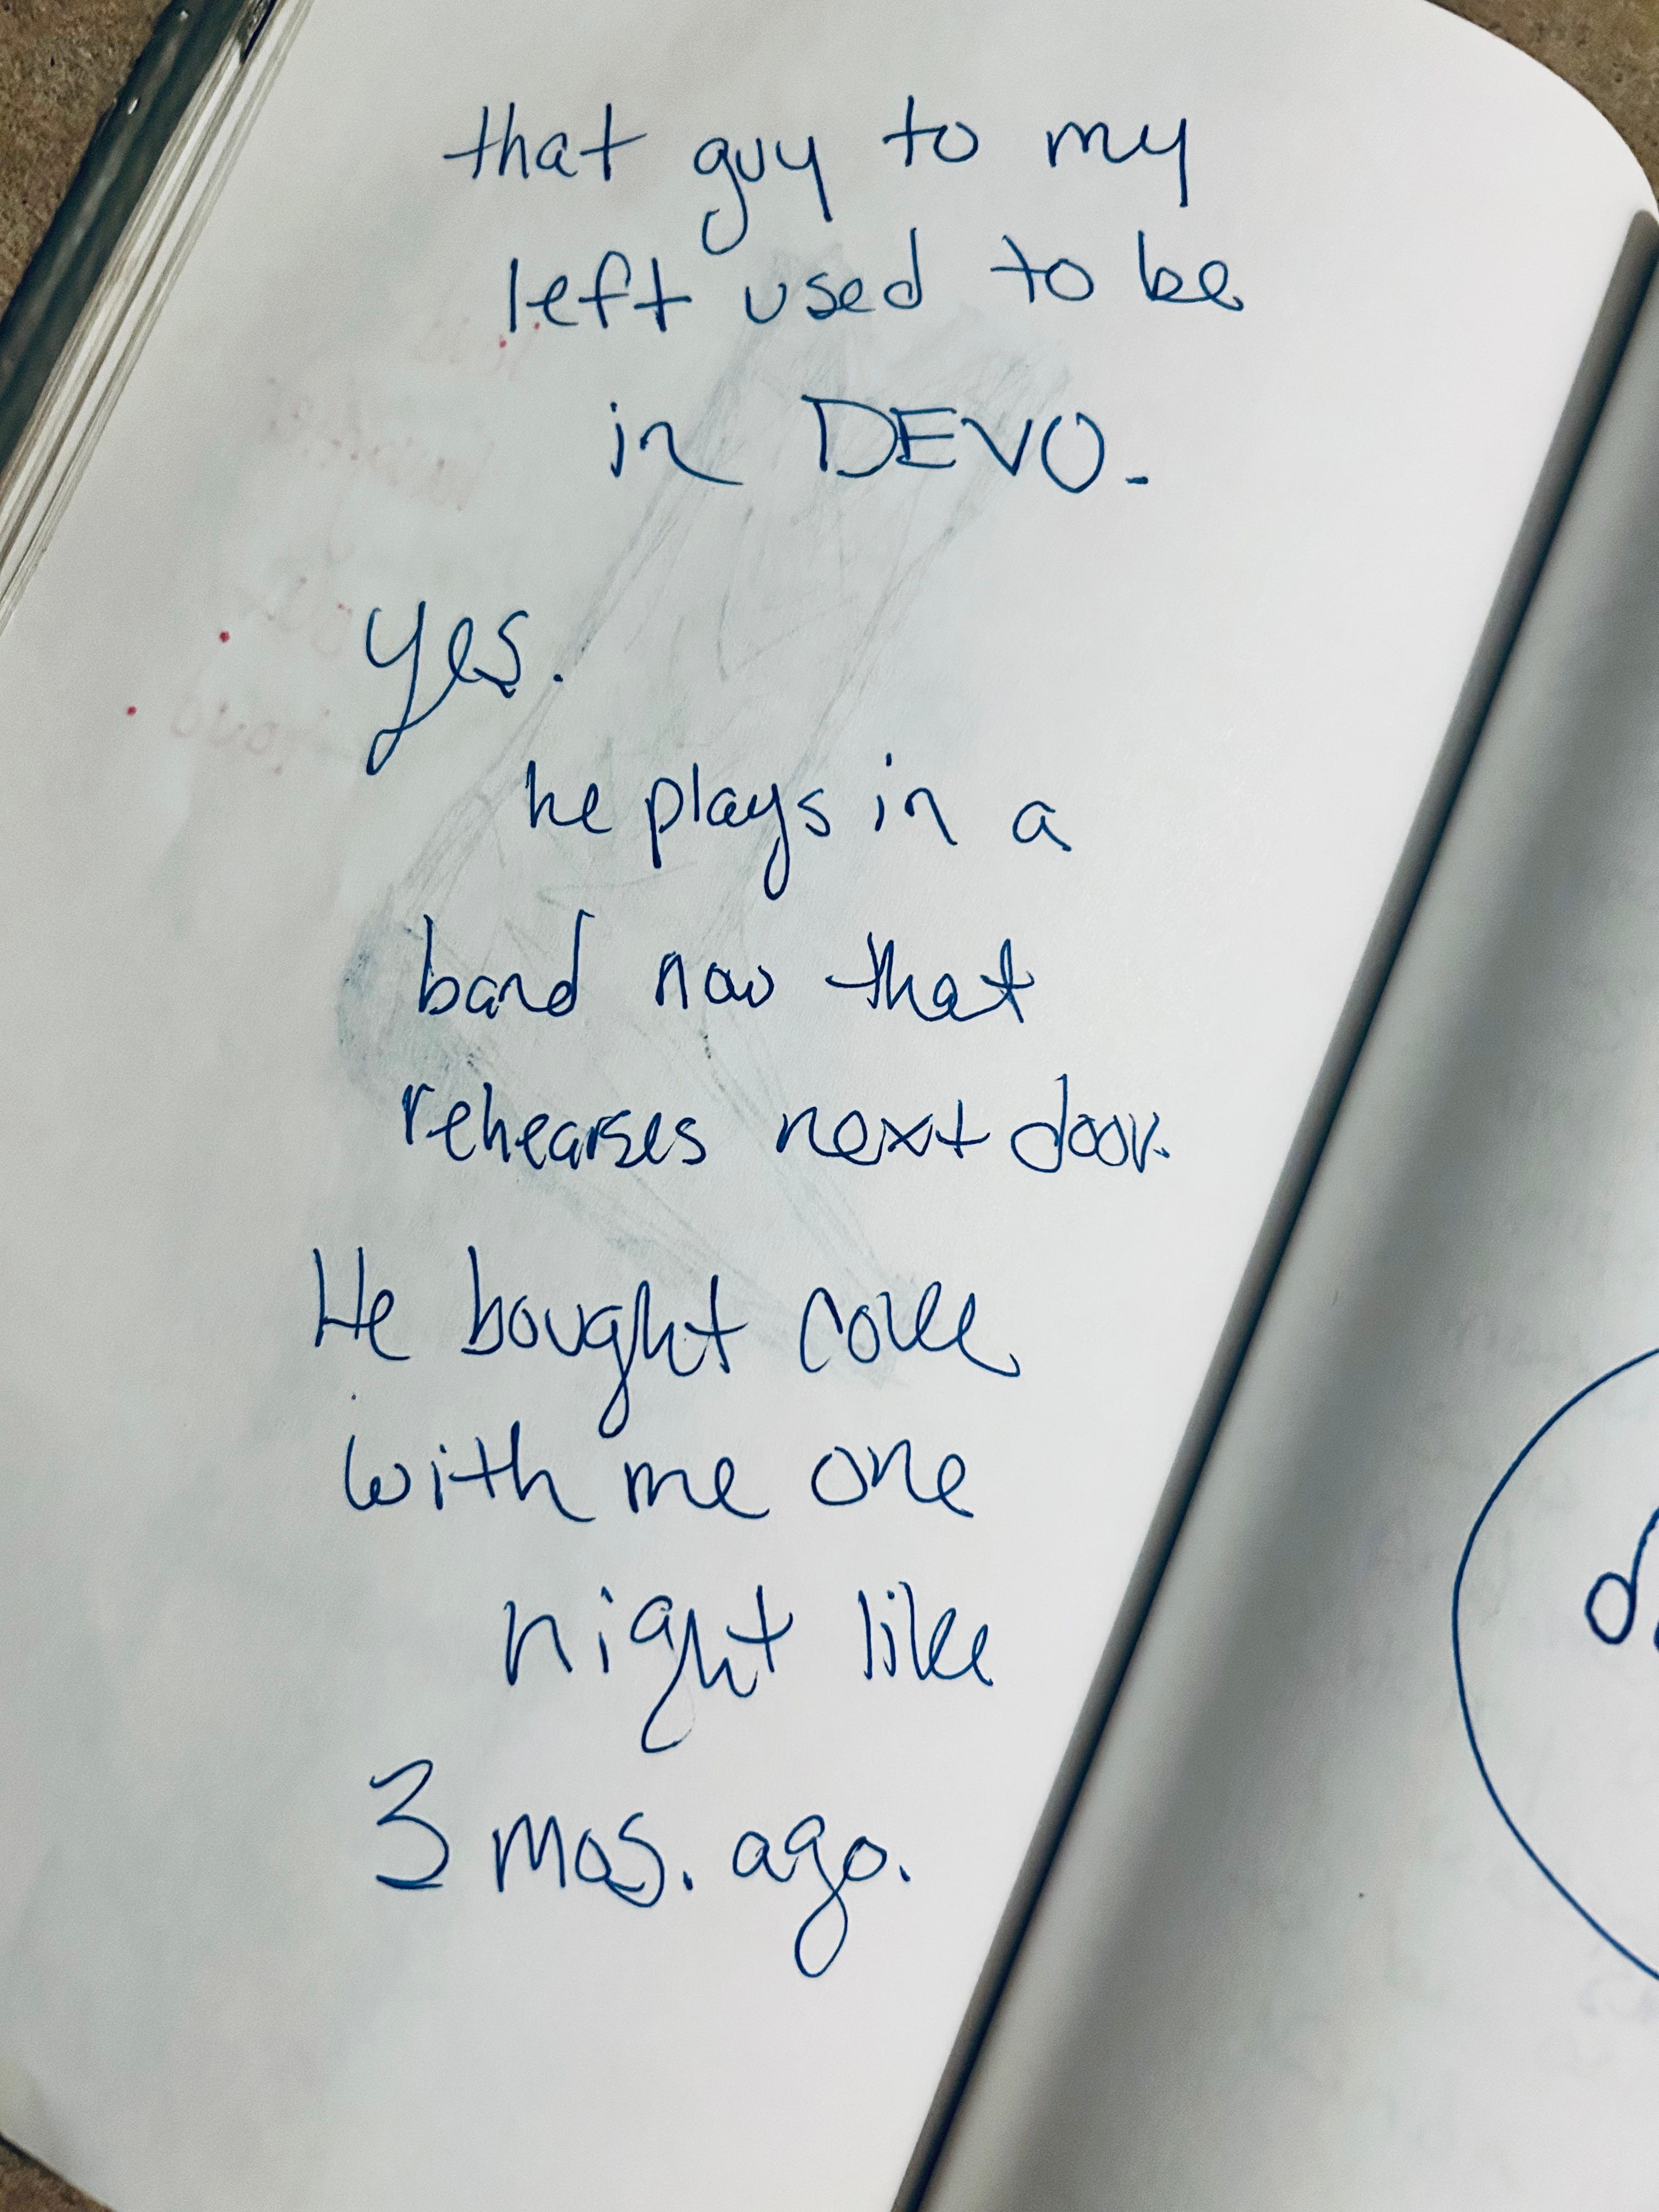 that guy to my
left used to be
in DEVO.
yes.
he plays in a
band now that
rehearses next door.
He bought coke
with me one
night like
3 mos. ago.